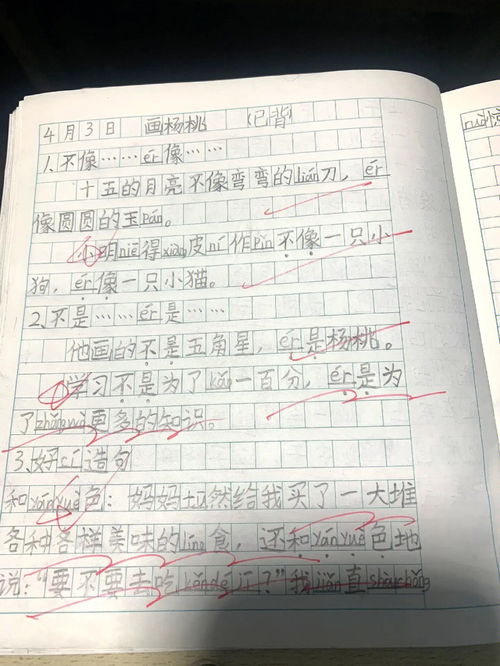 4月3日 画杨桃 (已背)
1.不像……ér像……
十五的月亮不像弯弯的lián刀，ér
像圆圆的玉pán。
小明niē得xiàng皮ní作pǐn不像一只小
狗，ér像一只小猫。
2.不是……ér是……
他画的不是五角星，ér是杨桃。
学习不是为了kǎo一百分，ér是为
了zhǎngwò更多的知识。
3.好cí造句
和yányuè色：妈妈tū然给我买了一大堆
各种各样美味的líng食，还和yányuè色地
说："要不要去吃kěndéjī？"我jiǎn直shòuchǒng